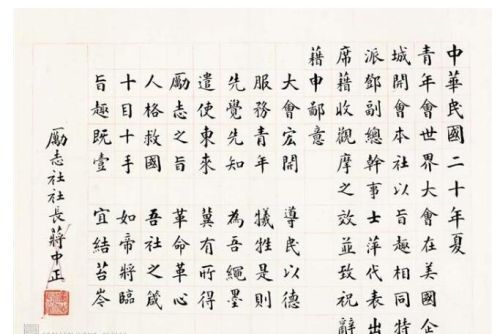 中華民國二十年夏
青年會世界大會在美國企
城開會本社以旨趣相同特
派鄧副總幹事士萍代表出
席籍收觀摩之效並致祝辭
籍申鄙意
大會宏開 導民以德
服務青年 犧牲是則
先覺先知 為吾繩墨
遣使東來 冀有所得
勵志之旨 革命革心
人格救國 吾社之箴
十目十手 如帝將臨
旨趣既壹 宜結苔岺
勵志社社長蔣中正